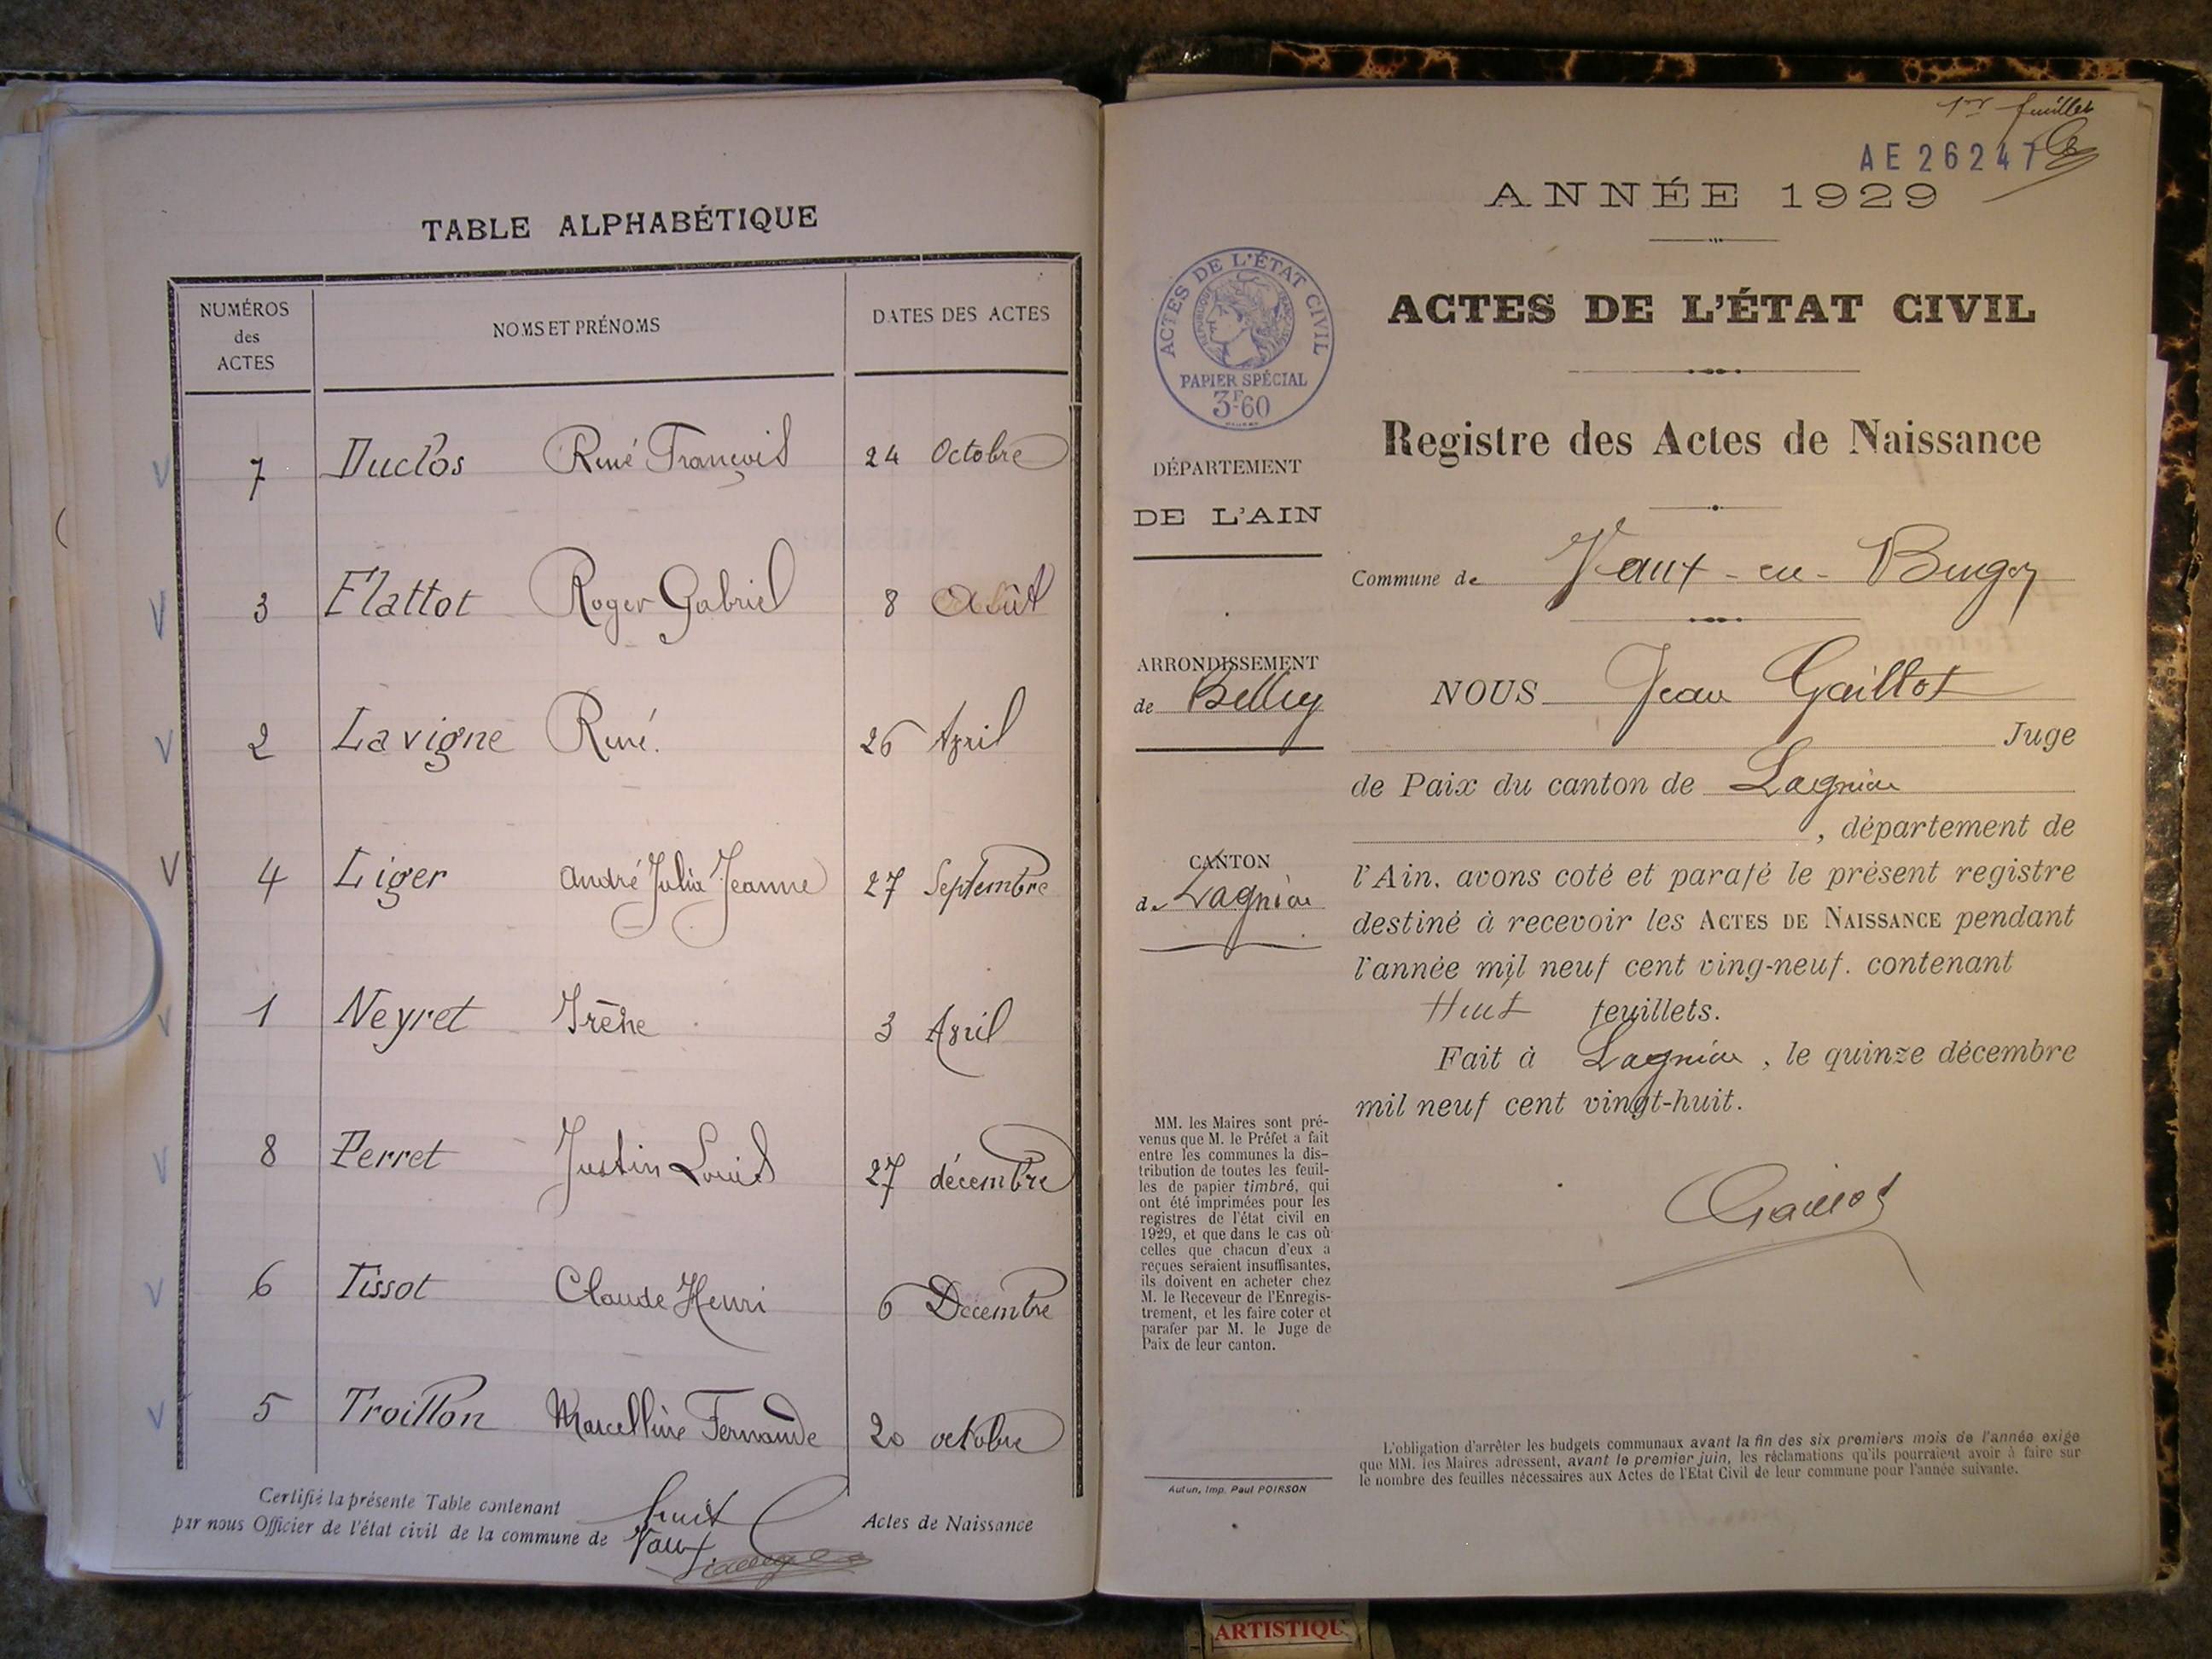 TABLE ALPHABÉTIQUE
NUMÉROS des ACTES
NOMS ET PRÉNOMS
DATES DES ACTES
7 Duclos René François 24 Octobre
3 Flattot Roger Gabriel 8 Août
2 Lavigne René. 26 Avril
4 Liger André Julia Jeanne 27 Septembre
1 Neyret Irène 3 Avril
8 Perret Justin Louis 27 décembre
6 Tissot Claude Henri 6 Décembre
5 Troillon Marcelline Fernande 20 octobre
Certifié la présente Table contenant huit Actes de Naissance
par nous Officier de l'état civil de la commune de Vaux.
1er feuillet
AE 26247
ANNÉE 1929
ACTES DE L'ÉTAT CIVIL
RÉPUBLIQUE FRANÇAISE
PAPIER SPÉCIAL
3F60
ACTES DE L'ÉTAT CIVIL
Registre des Actes de Naissance
DÉPARTEMENT
DE L'AIN
Commune de Vaux-en-Bugey
ARRONDISSEMENT
de Belley
CANTON
de Lagnieu
NOUS Jean Gaillot
Juge
de Paix du canton de Lagnieu
, département de
l'Ain, avons coté et parafé le présent registre
destiné à recevoir les ACTES DE NAISSANCE pendant
l'année mil neuf cent ving-neuf. contenant
Huit feuillets.
Fait à Lagnieu, le quinze décembre
mil neuf cent vingt-huit.
Gaillot
MM. les Maires sont pré-
venus que M. le Préfet a fait
entre les communes la dis-
tribution de toutes les feuil-
les de papier timbré, qui
ont été imprimées pour les
registres de l'état civil en
1929, et que dans le cas où
celles que chacun d'eux a
reçues seraient insuffisantes,
ils doivent en acheter chez
M. le Receveur de l'Enregis-
trement, et les faire coter et
parafer par M. le Juge de
Paix de leur canton.
Autun, Imp. Paul POIRSON
L'obligation d'arrêter les budgets communaux avant la fin des six premiers mois de l'année exige
que MM. les Maires adressent, avant le premier juin, les réclamations qu'ils pourraient avoir à faire sur
le nombre des feuilles nécessaires aux Actes de l'Etat Civil de leur commune pour l'année suivante.
ARTISTIQU